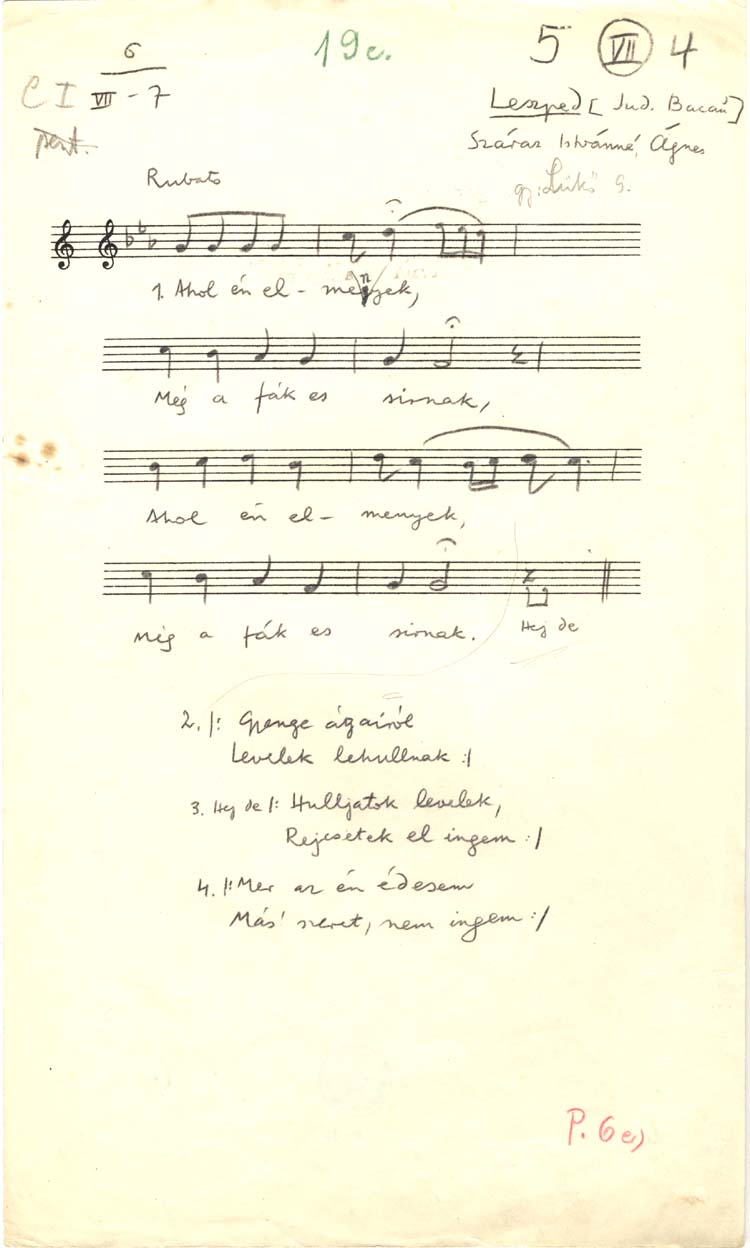 6
VII - 7
C I
19c.
5 VII 4
Leszped [Jud. Bacău]
Száraz Istvánné, Ágnes
gy: Lükő G.
pent.
Rubato
1. Ahol én el- menyek,
Még a fák es sirnak,
Ahol én el- menyek,
Még a fák es sirnak. Hej de
2. /: Gyenge ágairól
Levelek lehullnak :/
3. Hej de /: Hulljatok levelek,
Rejcsetek el ingem :/
4. /: Mer az én édesem
Más' szeret, nem ingem :/
P. 6e)